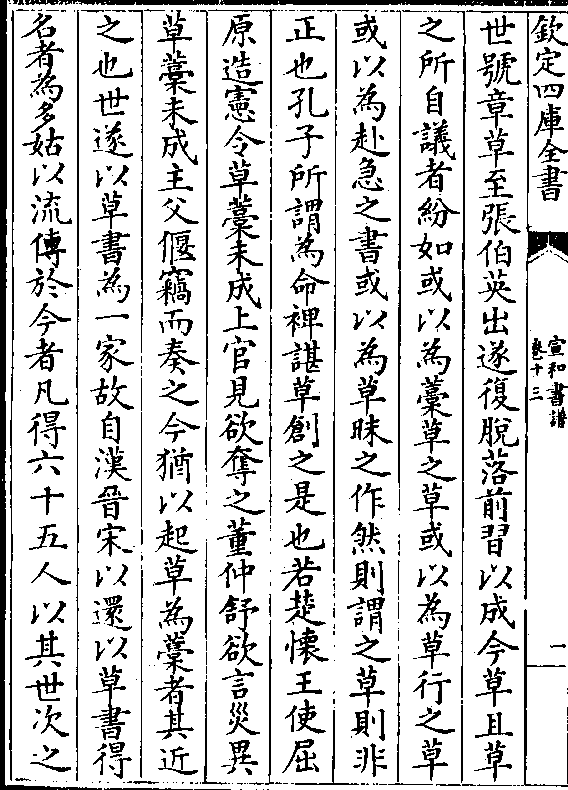 欽定四庫全書
宣和書譜
卷十三
一
世號章草至張伯英出遂復脫落前習以成今草且草
之所自議者紛如或以為藁草之草或以為草行之草
或以為赴急之書或以為草昧之作然則謂之草則非
正也孔子所謂為命裨諶草創之是也若楚懷王使屈
原造憲令草藁未成上官見欲奪之董仲舒欲言災異
草藁未成主父偃竊而奏之今猶以起草為藁者其近
之也世遂以草書為一家故自漢晉宋以還以草書得
名者為多姑以流傳於今者凡得六十五人以其世次之